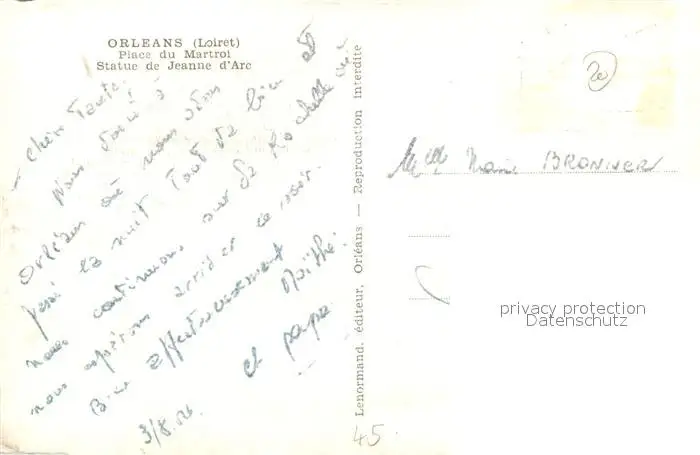 ORLEANS (Loiret)
Place du Martroi
Statue de Jeanne d'Arc
Chère Tante,
Nous voici à
Orléans où nous avons
passé la nuit. Tout va bien et
nous continuons sur La Rochelle où
nous espérons arriver ce soir.
Bien affectueusement
Maïthé
et papa.
3/8.56.
Lenormand, éditeur, Orléans — Reproduction interdite
20
Mlle Marie BRONNER
privacy protection
Datenschutz
45